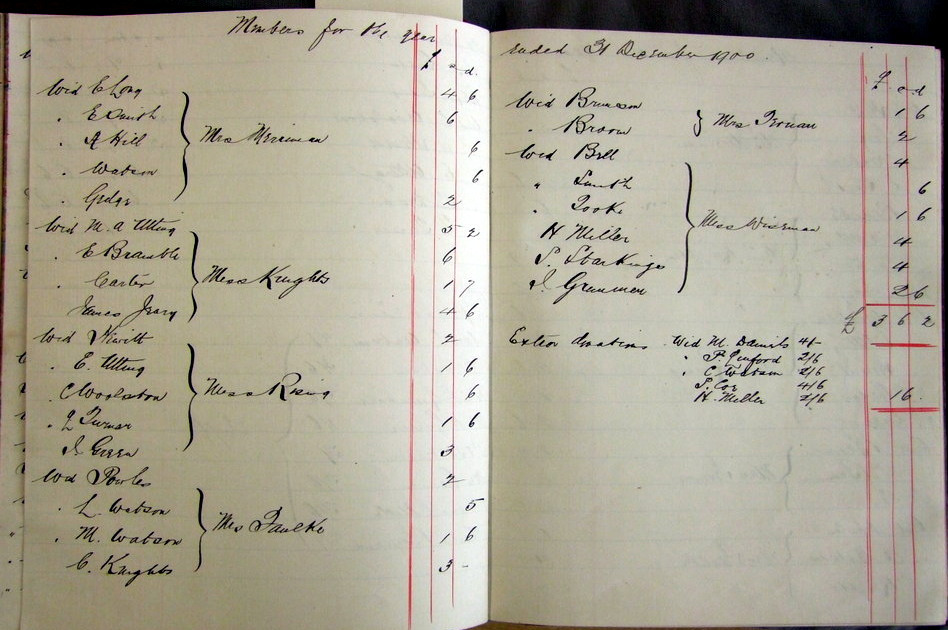 Members for the year
£ s d.
Wid E Long 4 6
" E Smith 6
" A Hill Mrs Merriman 6
" Watson 6
" Gedge 2
Wid M. A Utting 5 2
" E Bramble 6
" Carter Miss Knights 1 7
James Jeary 4 6
Wid Hewitt 2
" E. Utting 1 6
" C Woolston Miss Rising 6
" Turner 1 6
J. Green 3
Wid Powles 2
" L. Watson 5
" M. Watson Mrs Faulke 1 6
" C. Knights 3 -
ended 31 December 1900.
£ s d
Wid Brunson 1 6
" Broom Mrs 2
Wid Bell 4
" Smith 6
" Tooke Miss Wiseman 1 6
H Miller 4
S. Starkings 4
J. Grummen 2 6
£ 3 6 2
Extra donations Wid M. Daniels 4/-
" P. 2/6
" C Watson 2/6
S. Cox 4/6
H. Miller 2/6 16 .